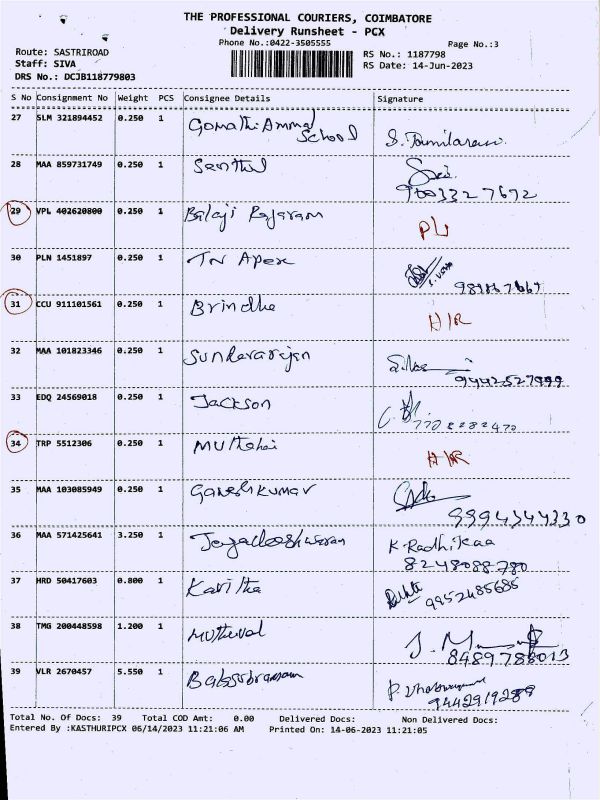 THE PROFESSIONAL COURIERS, COIMBATORE
Delivery Runsheet - PCX
Phone No.:0422-3505555
Page No.:3
Route: SASTRIROAD
Staff: SIVA
DRS No.: DCJB118779803
RS No.: 1187798
RS Date: 14-Jun-2023
S No Consignment No Weight PCS Consignee Details Signature
27 SLM 321894452 0.250 1 Gomathi Ammal School S. Tamilarasi
28 MAA 859731749 0.250 1 Senthil
9003327672
29 VPL 402620800 0.250 1 Balaji Rajaram
30 PLN 1451897 0.250 1 TN Apex
31 CCU 911101561 0.250 1 Brindha H/R
32 MAA 101823346 0.250 1 Sundararajan
9442527999
33 EDQ 24569018 0.250 1 Jackson
34 TRP 5512306 0.250 1 Muthahi H/R
35 MAA 103085949 0.250 1 Ganesh kumar
9994344330
36 MAA 571425641 3.250 1 Jegadeeshwaran K-Radhikaa
8248088780
37 HRD 50417603 0.800 1 Kavitha
9952485685
38 TMG 200448598 1.200 1 Muthuvel
8489788013
39 VLR 2670457 5.550 1 Balasubramam
9442919289
Total No. Of Docs: 39 Total COD Amt: 0.00 Delivered Docs: Non Delivered Docs:
Entered By :KASTHURIPCX 06/14/2023 11:21:06 AM Printed On: 14-06-2023 11:21:05